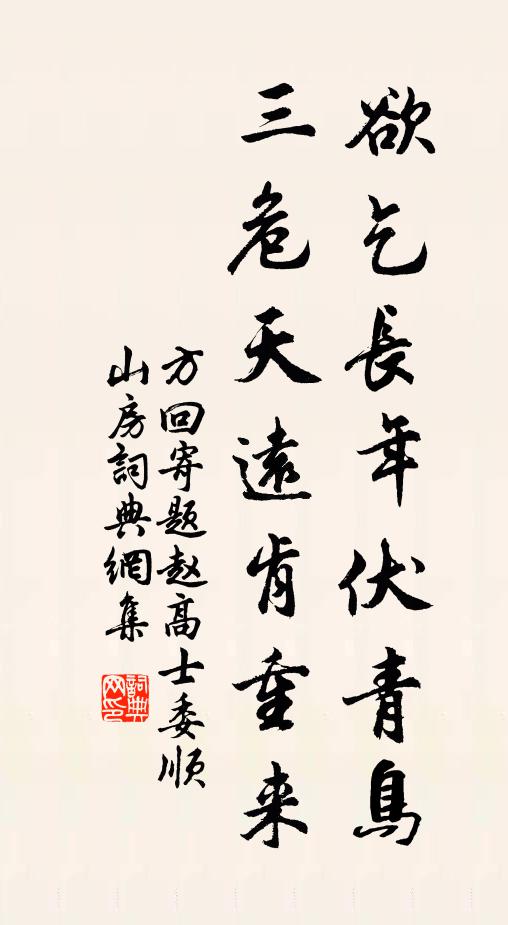 欲乞長年伏青鳥
三危天遠肯重来
方回寄題赵高士委順
山房詞典網集
詞典网印